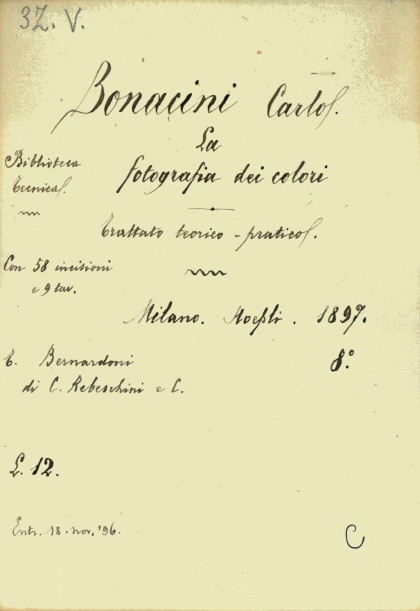 3Z. V.
Bonacini Carlo.
La
fotografia dei colori
Biblioteca
tecnica.
Trattato teorico-pratico.
Con 58 incisioni
e 9 tav.
Milano. Hoepli. 1897.
8°
T. Bernardoni
di C. Rebeschini e C.
L. 12.
Entr. 18. nov. '96.
C